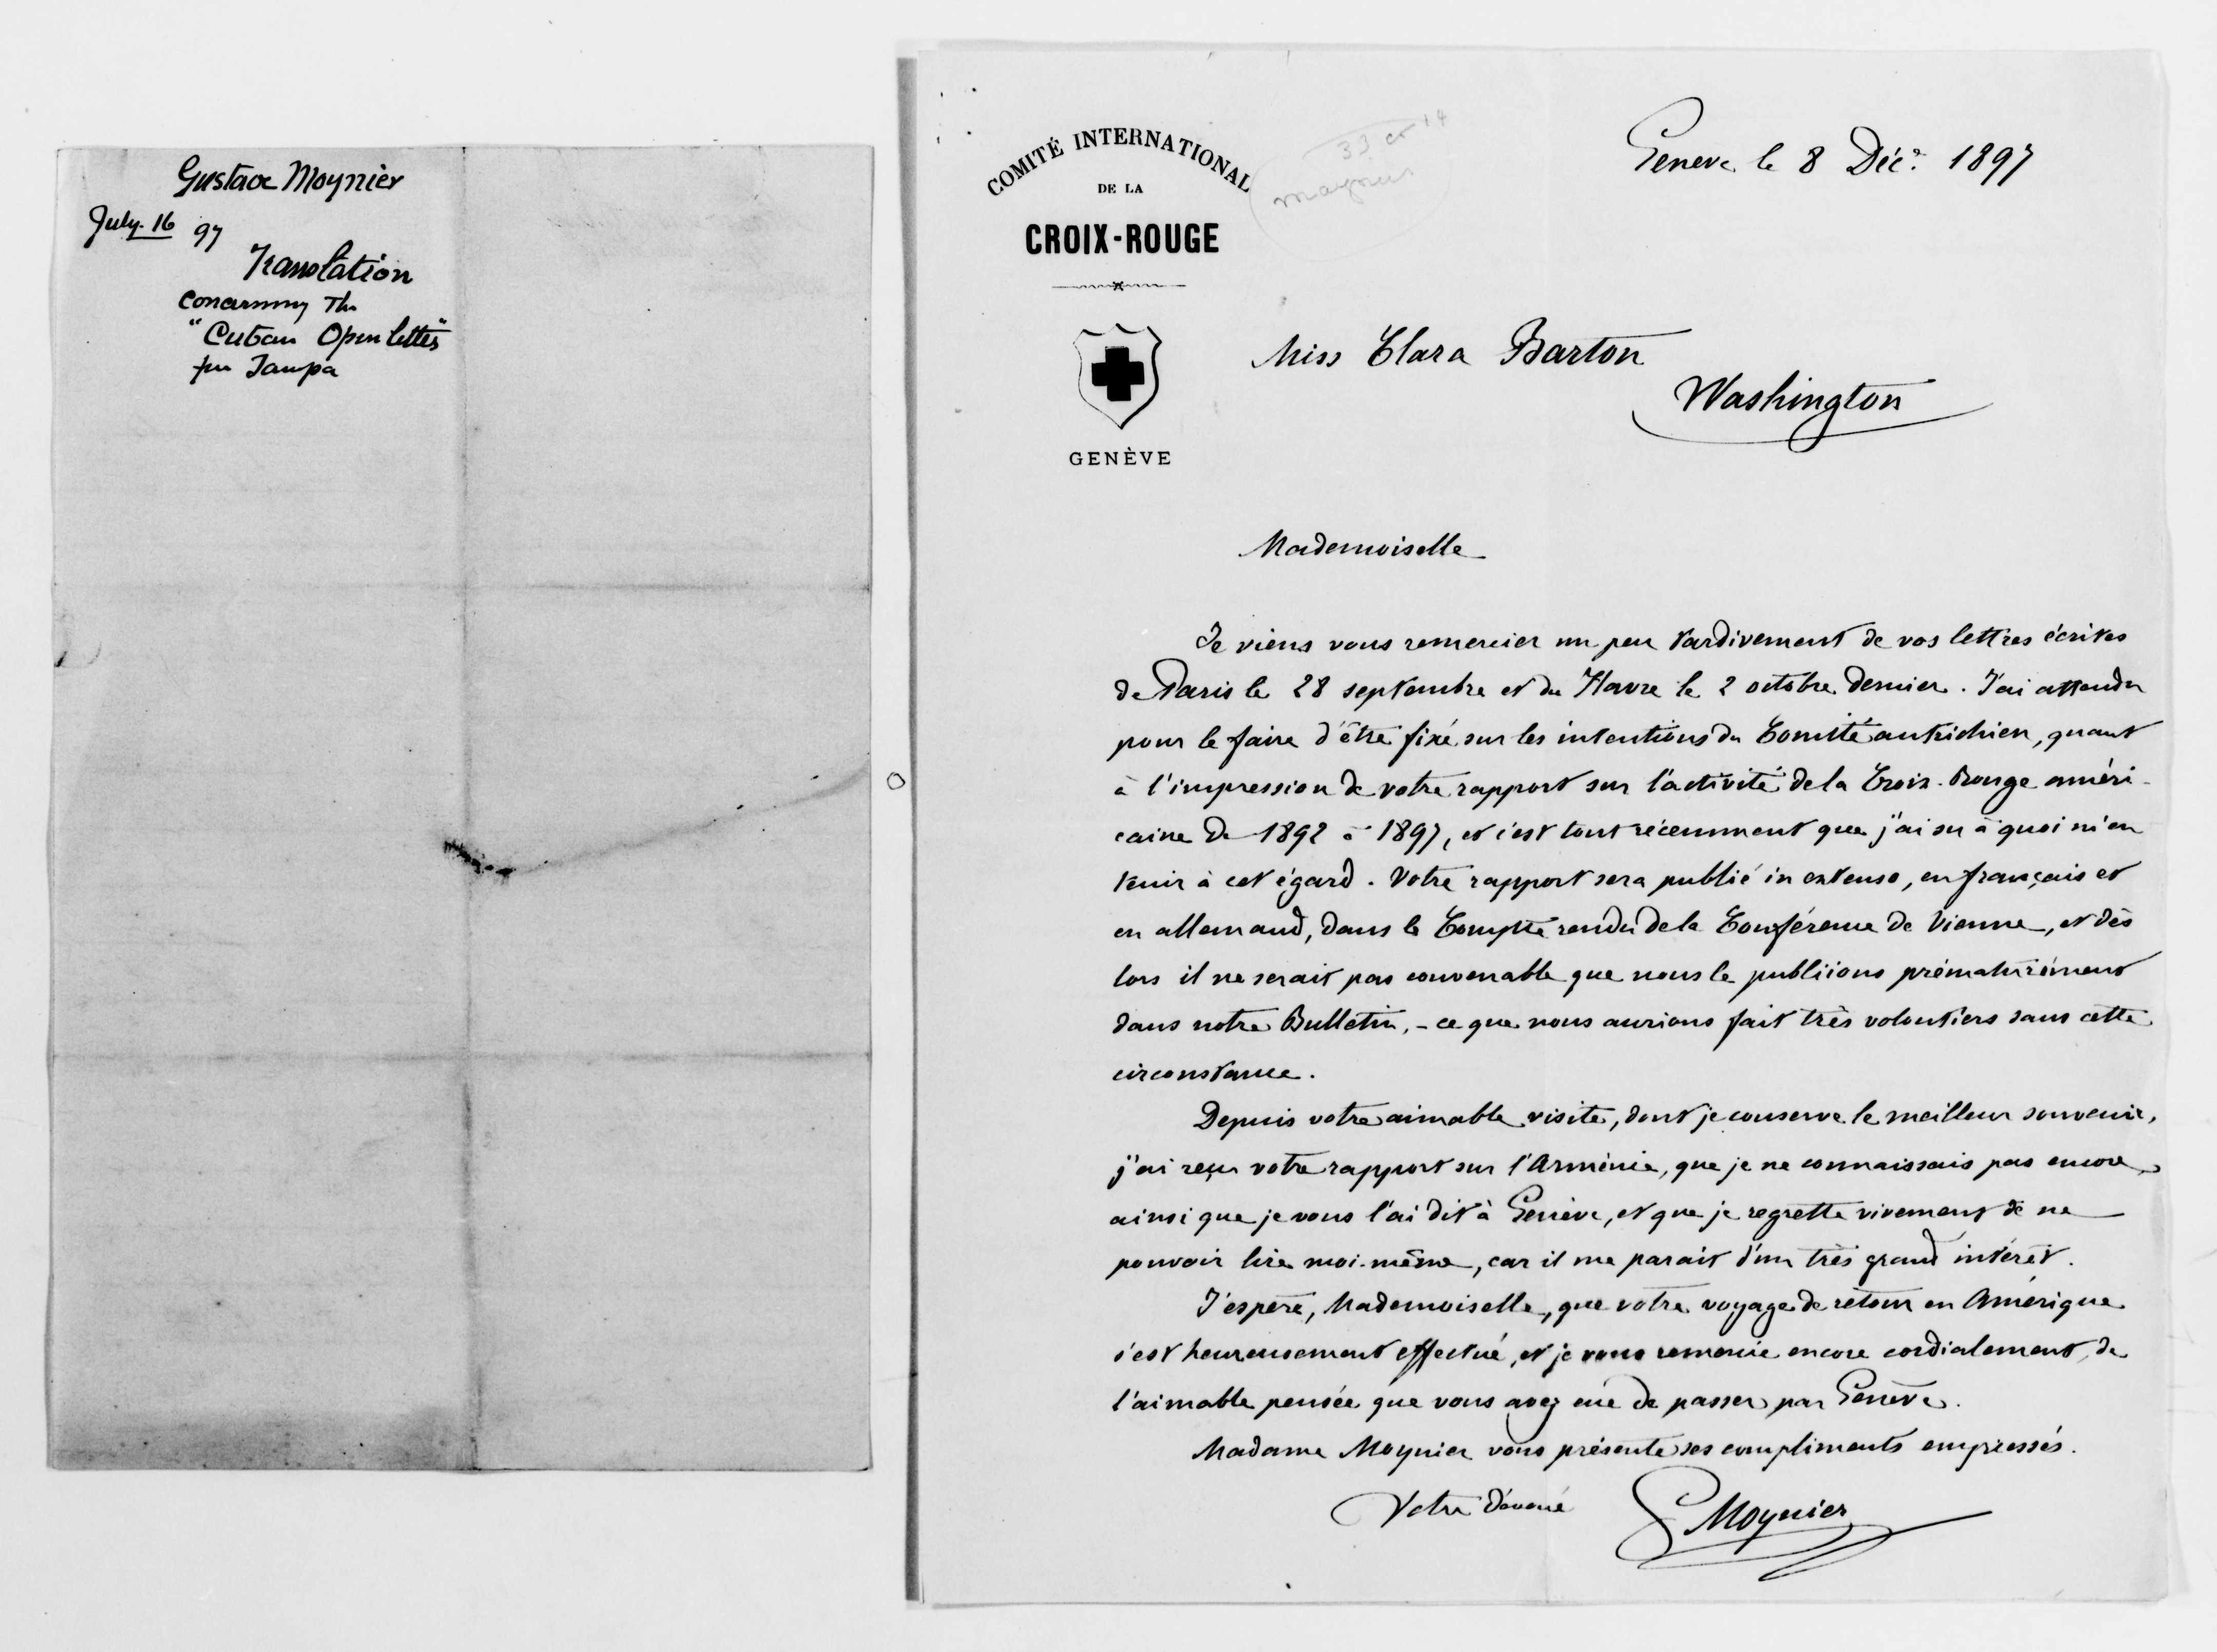 Gustave Moynier
July. 16 97
Translation
Concerning The
"Cuban Open letter"
fm Tampa
COMITÉ INTERNATIONAL
DE LA
CROIX-ROUGE
GENÈVE
moynier
Genève le 8 Déc.r 1897
Miss Clara Barton
Washington
Mademoiselle
Je viens vous remercier un peu tardivement de vos lettres écrites
de Paris le 28 septembre et du Havre le 2 octobre dernier. J'ai attendu
pour le faire d'être fixé sur les intentions du Comité autrichien, quant
à l'impression de votre rapport sur l'activité de la Croix-Rouge améri-
caine de 1892 à 1897, et c'est tout récemment que j'ai su à quoi m'en
tenir à cet égard. Votre rapport sera publié in extenso, en français et
en allemand, dans le Compte rendu de la Conférence de Vienne, et dès
lors il ne serait pas convenable que nous le publiions prématurément
dans notre Bulletin, - ce que nous aurions fait très volontiers sans cette
circonstance.
Depuis votre aimable visite, dont je conserve le meilleur souvenir,
j'ai reçu votre rapport sur l'Arménie, que je ne connaissais pas encore,
ainsi que je vous l'ai dit à Genève, et que je regrette vivement de ne
pouvoir lire moi-même, car il me parait d'un très grand intérêt.
J'espère, Mademoiselle, que votre voyage de retour en Amérique
s'est heureusement effectué, et je vous remercie encore cordialement de
l'aimable pensée que vous avez eue de passer par Genève.
Madame Moynier vous présente ses compliments empressés.
Votre dévoué G Moynier